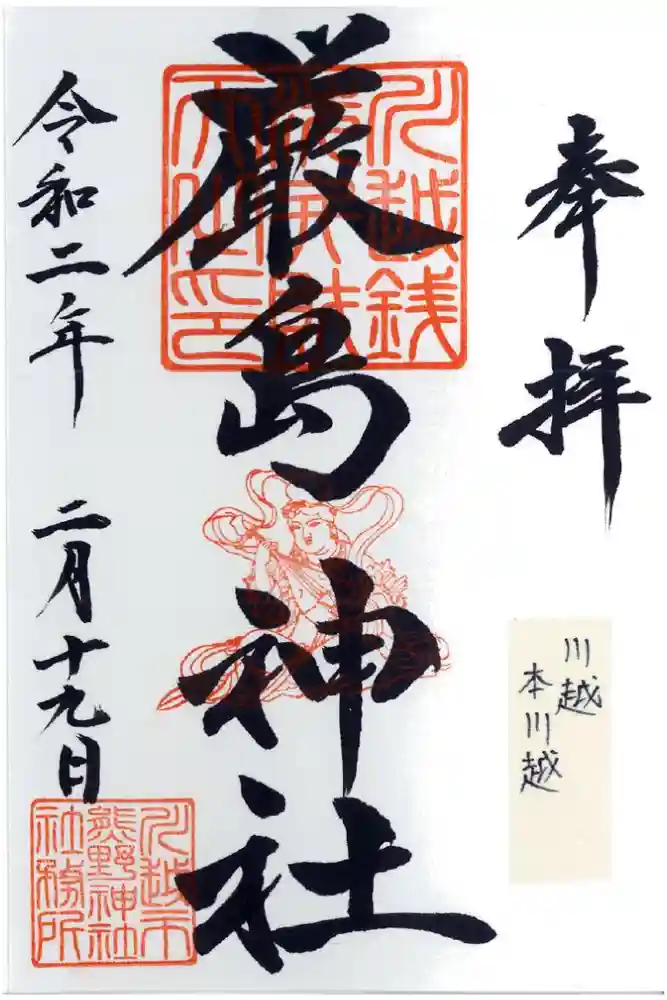 奉拝
川越
本川越
厳島神社
川越銭
令和二年
二月十九日
川越市
熊野神社
社務所